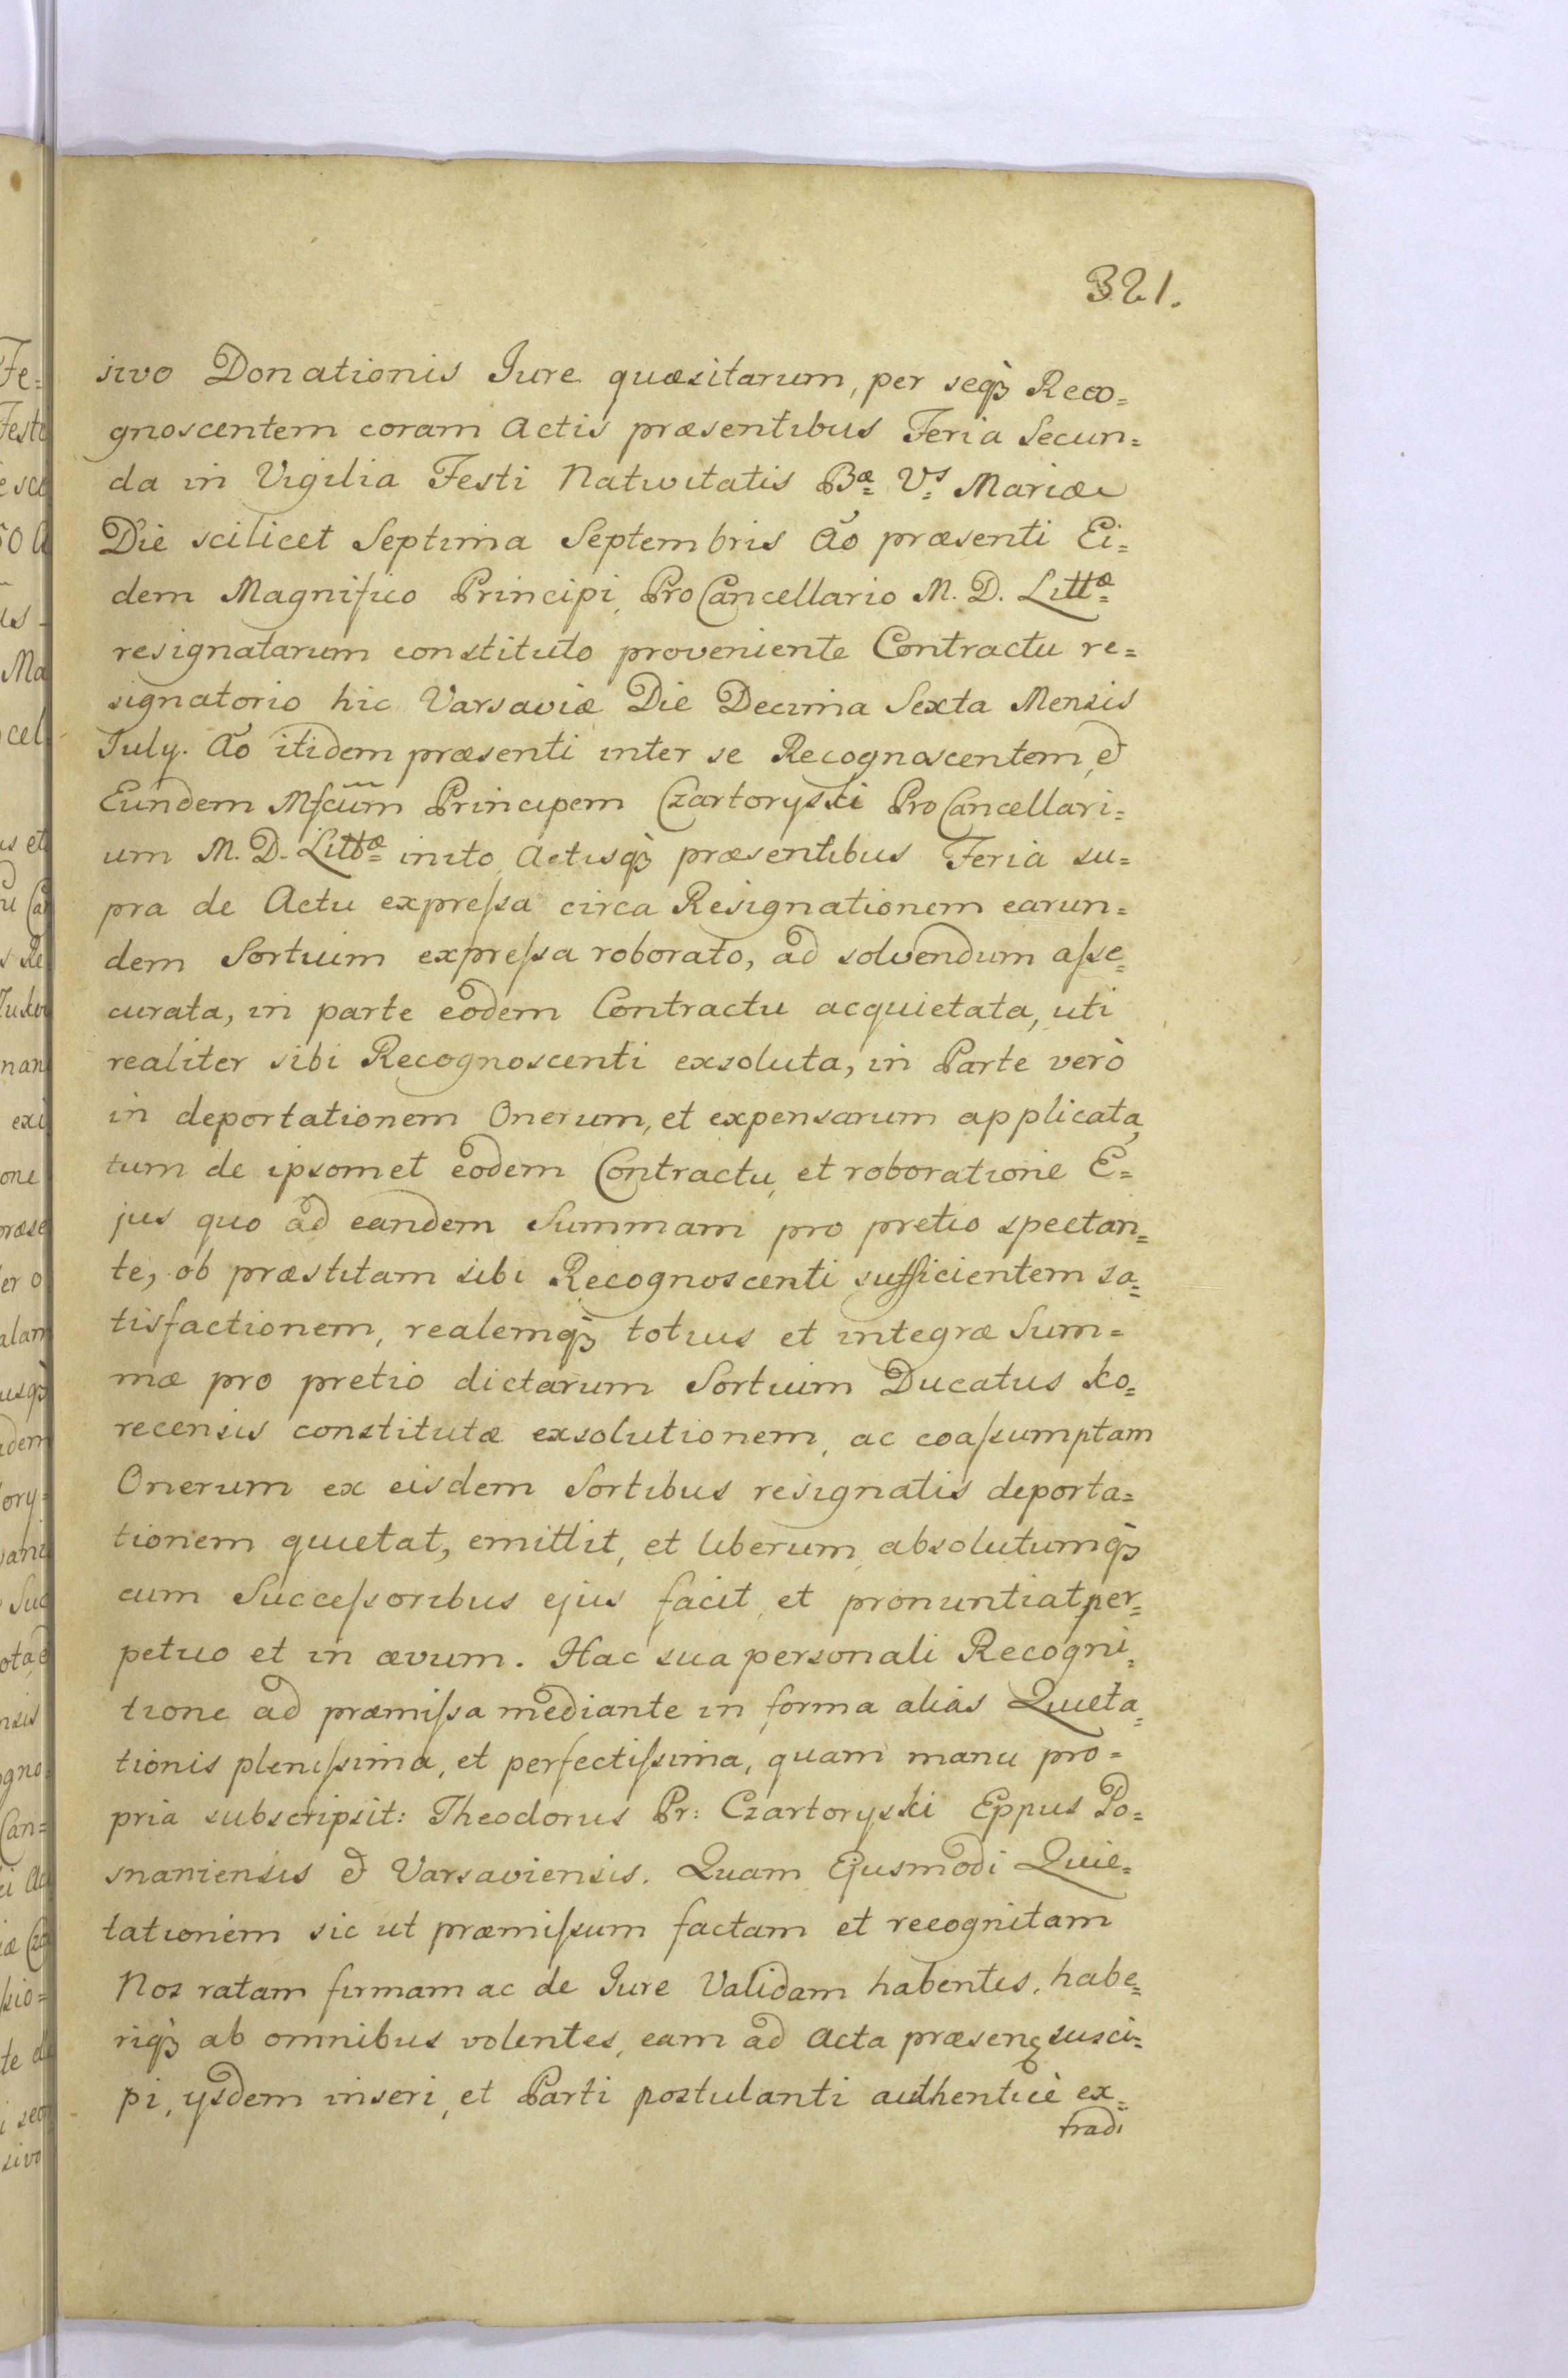 321.
sivo Donationis Jure quæsitarum, per seq₃ Reco=
gnoscentem coram Actis præsentibus Feria Secun=
da in Vigilia Festi Nativitatis Bæ Vs Mariæ
Die scilicet Septima Septembris Ao præsenti Ei=
dem Magnifico Principi, ProCancellario M. D. Littæ
resignatarum constituto proveniente Contractu re=
signatorio hic Varsaviæ Die Decima Sexta Mensis
July. Ao itidem præsenti inter se Recognoscentem, et
Eundem Mfcum Principem Czartoryski ProCancellari=
um M. D. Littæ inito, Actisq₃ præsentibus Feria su=
pra de Actu expreſsa circa Resignationem earun=
dem Sortium expreſsa roborato, ad solvendum aſse=
curata, in parte eodem Contractu acquietata, uti
realiter sibi Recognoscenti exsoluta, in Parte verò
in deportationem Onerum, et expensarum applicata,
tum de ipsomet eodem Contractu, et roboratione E=
jus quo ad eandem Summam pro pretio spectan=
te, ob præstitam sibi Recognoscenti sufficientem sa=
tisfactionem, realemq₃ totius et integræ Sum=
mæ pro pretio dictarum Sortium Ducatus Ko=
recensis constitutæ exsolutionem, ac coaſsumptam
Onerum ex eisdem Sortibus resignatis deporta=
tionem quietat, emittit, et liberum, absolutumq₃
cum Succeſsoribus ejus facit, et pronuntiat, per=
petuo et in ævum. Hac sua personali Recogni=
tione ad præmiſsa mediante in forma alias Quieta=
tionis pleniſsima, et perfectiſsima, quam manu pro=
pria subscripsit: Theodorus Pr: Czartoryski Eppus Po=
snaniensis et Varsaviensis. Quam Ejusmodi Quie=
tationem sic ut præmiſsum factam et recognitam
Nos ratam firmam ac de Jure Validam habentes, habe=
riq₃ ab omnibus volentes, eam ad Acta præsenꝫ susci=
pi, ysdem inseri, et Parti postulanti authenticè ex=
tradi